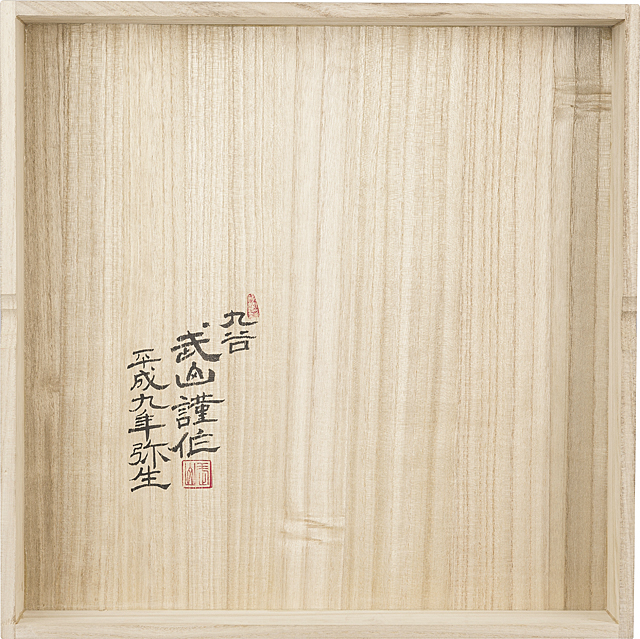 九谷
武山謹作
平成九年弥生